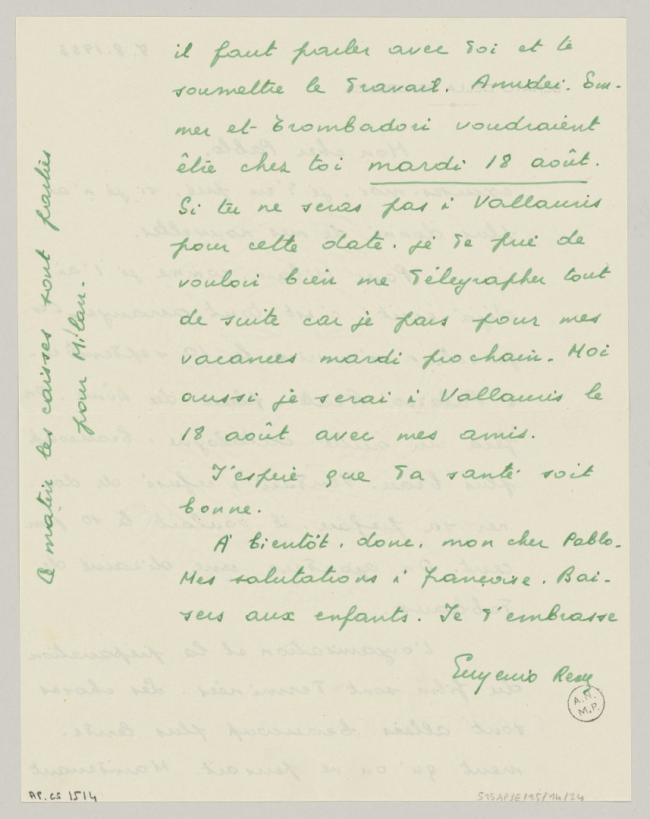 il faut parler avec toi et te
soumettre le travail. Amidei. Em-
mer et Trombadori voudraient
être chez toi mardi 18 août.
Si tu ne seras pas à Vallauris
pour cette date. je te prie de
vouloir bien me télégrapher tout
de suite car je pars pour mes
vacances mardi prochain. Moi
aussi je serai à Vallauris le
18 août avec mes amis.
J'espère que ta santé soit
bonne.
A bientôt, donc, mon cher Pablo.
Mes salutations à Françoise. Bai-
sers aux enfants. Je t'embrasse
Eugenio Reale
Ce matin les caisses sont parties
pour Milan.
A.N.
M.P.
AP. CS 1514
515AP/E/15/14/24